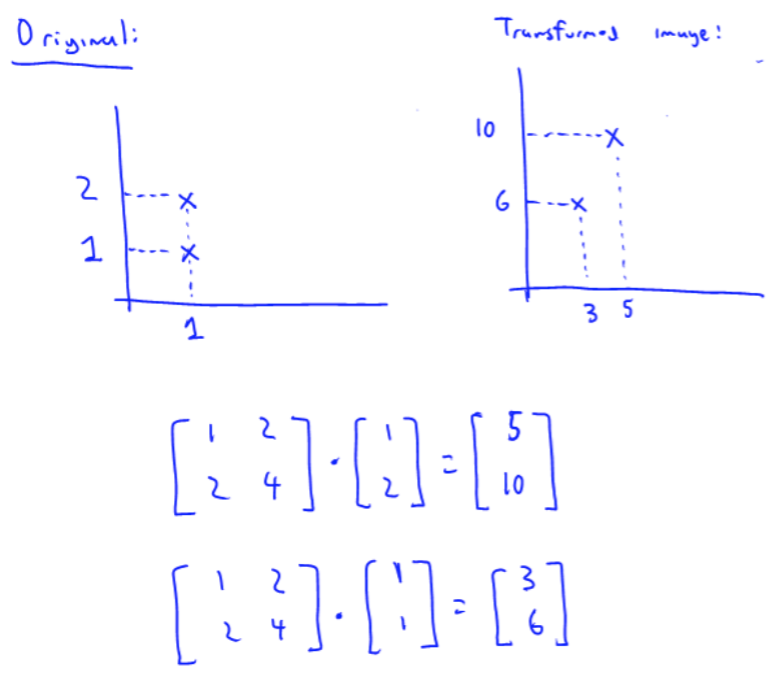 Original:
Transformed image:
2
1
1
10
6
3 5
[1 2; 2 4] · [1; 2] = [5; 10]
[1 2; 2 4] · [1; 1] = [3; 6]